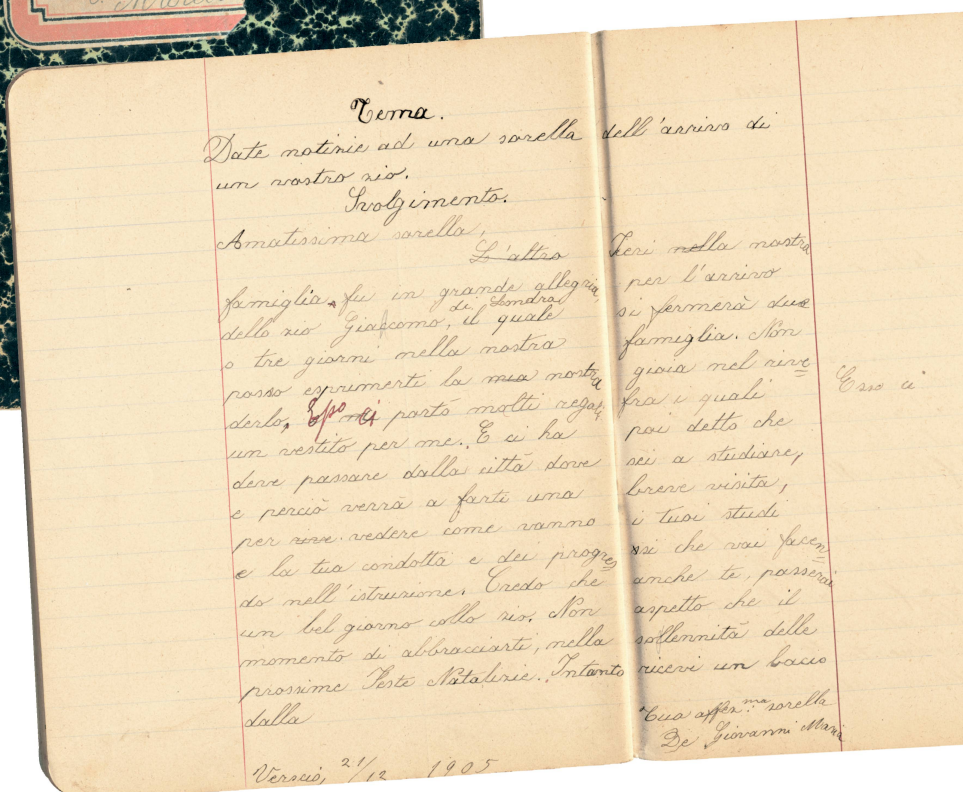 Tema.
Date notizie ad una sorella dell'arrivo di
un vostro zio.
Svolgimento.
Amatissima sorella,
L'altro Ieri nella nostra
famiglia, fu in grande allegria, per l'arrivo
dello zio Giacomo, di Londra il quale si fermerà due
o tre giorni nella nostra famiglia. Non
posso esprimerti la mia nostra gioia nel rive
derlo, Esso mi ci portò molti regali, fra i quali Esso ci
un vestito per me. E ci ha poi detto che
deve passare dalla città dove sei a studiare,
e perciò verrà a farti una breve visita,
per vedere come vanno i tuoi studi
e la tua condotta e dei progres si che vai facen
do nell'istruzione. Credo che anche te, passerai
un bel giorno collo zio. Non aspetto che il
momento di abbracciarti, nella sollennità delle
prossime Feste Natalizie. Intanto ricevi un bacio
dalla
Tua affez.ma sorella
De Giovanni Maria
Verscio, 21/12 1905